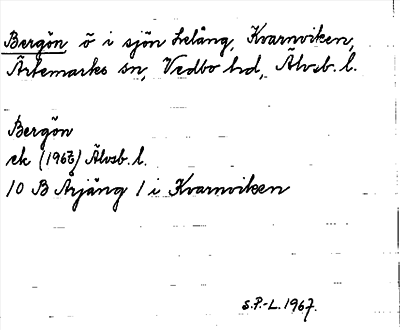 Bergön ö i sjön Lelång, Kvarnviken,
Ärtemarks sn, Vedbo hd, Älvsb. l.
Bergön
ek (1966) Älvsb. l.
10 B Årjäng 1 i Kvarnviken
S.P.-L. 1967.